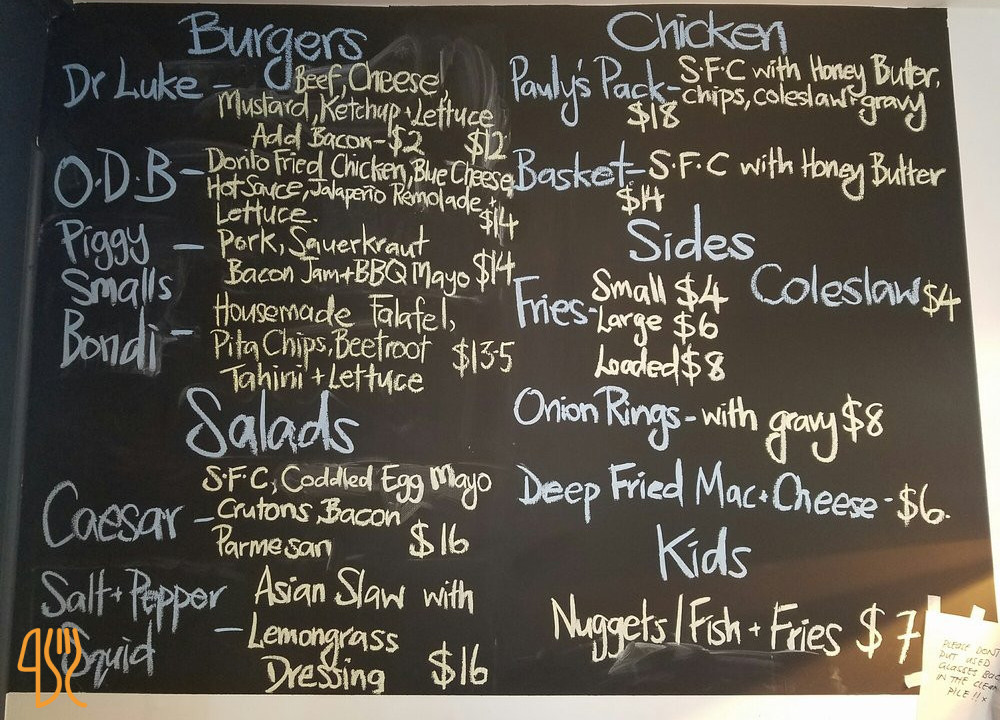 Burgers
Dr Luke - Beef, Cheese,
Mustard, Ketchup + Lettuce
Add Bacon - $2 $12
O.D.B - Dorito Fried Chicken, Blue Cheese,
Hot Sauce, Jalapeño Remolade +
Lettuce. $14
Piggy Smalls - Pork, Sauerkraut
Bacon Jam + BBQ Mayo $14
Bondi - Housemade Falafel,
Pita Chips, Beetroot
Tahini + Lettuce $13.5
Salads
Caesar - S.F.C, Coddled Egg Mayo
Crutons, Bacon
Parmesan $16
Salt + Pepper Squid - Asian Slaw with
Lemongrass
Dressing $16
Chicken
Pauly's Pack - S.F.C with Honey Butter,
chips, coleslaw + gravy
$18
Basket - S.F.C with Honey Butter
$14
Sides
Fries - Small $4
Large $6
Loaded $8
Coleslaw $4
Onion Rings - with gravy $8
Deep Fried Mac + Cheese - $6.
Kids
Nuggets / Fish + Fries $7
PLEASE DONT
PUT USED
GLASSES BAC
IN THE CLEAN
PILE !! x